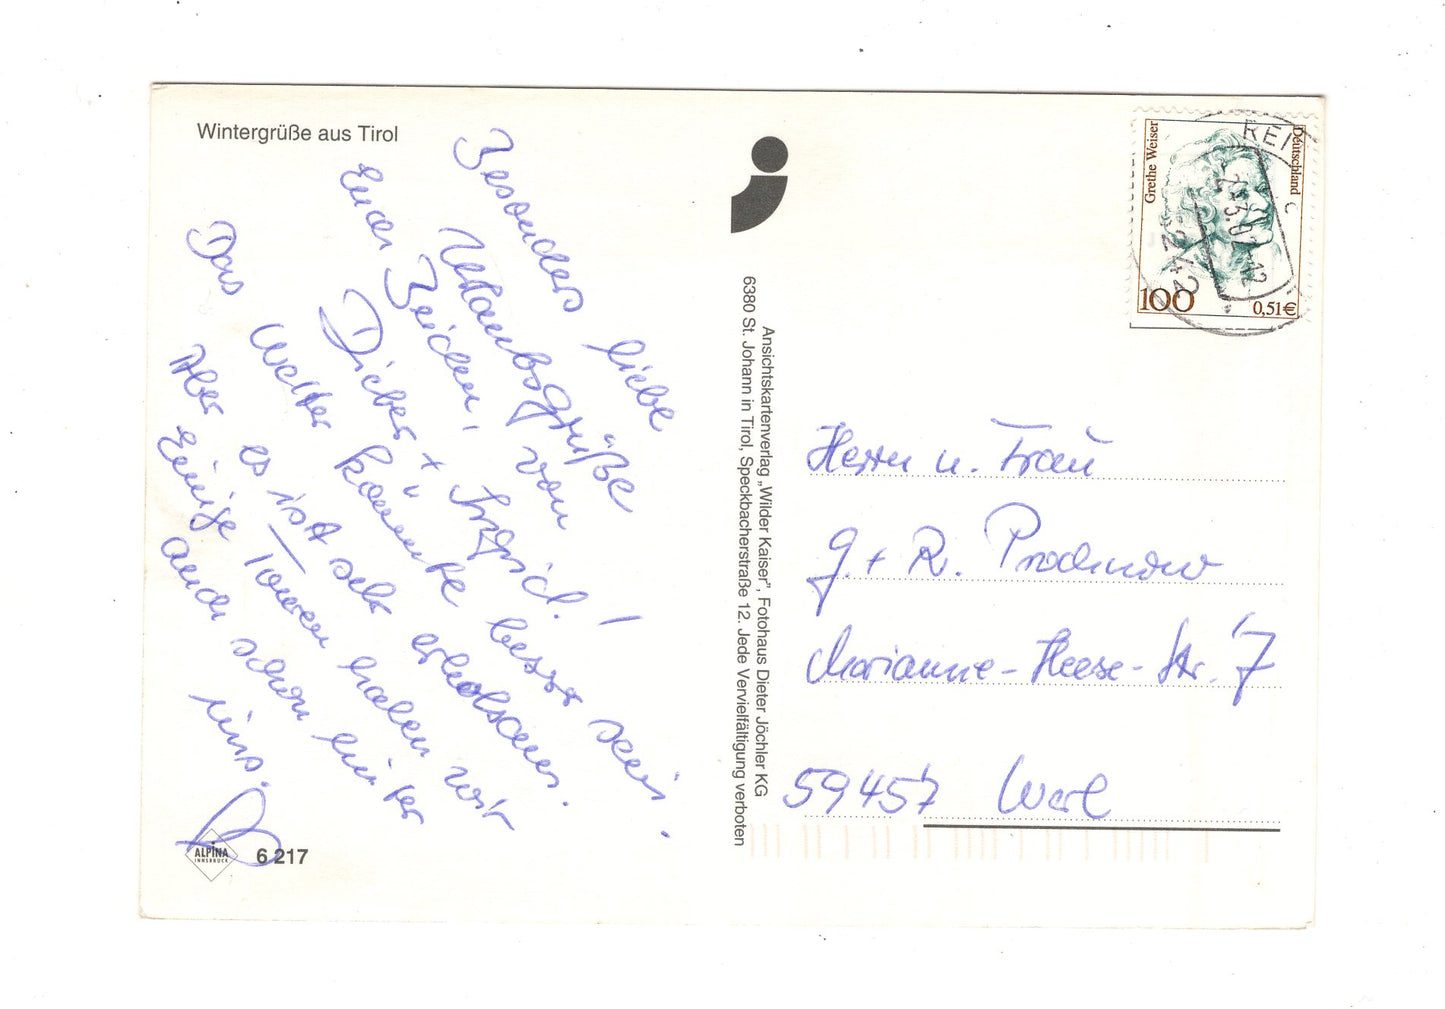 Wintergrüße aus Tirol
Besonders liebe
Urlaubsgrüße von
Euch Beiden,
Dieter + Ingrid!
Das Wetter könnte besser sein.
Aber es ist sehr erholsam.
Einige Touren haben wir
auch schon hinter
uns.
ALPINA
INNSBRUCK
6 217
Ansichtskartenverlag „Wilder Kaiser", Fotohaus Dieter Jöchler KG
6380 St. Johann in Tirol, Speckbacherstraße 12. Jede Vervielfältigung verboten
Grethe Weiser
Deutschland
100
0,51€
Herrn u. Frau
G. + R. Prochnow
Marianne-Heese-Str. 7
59457 Werl